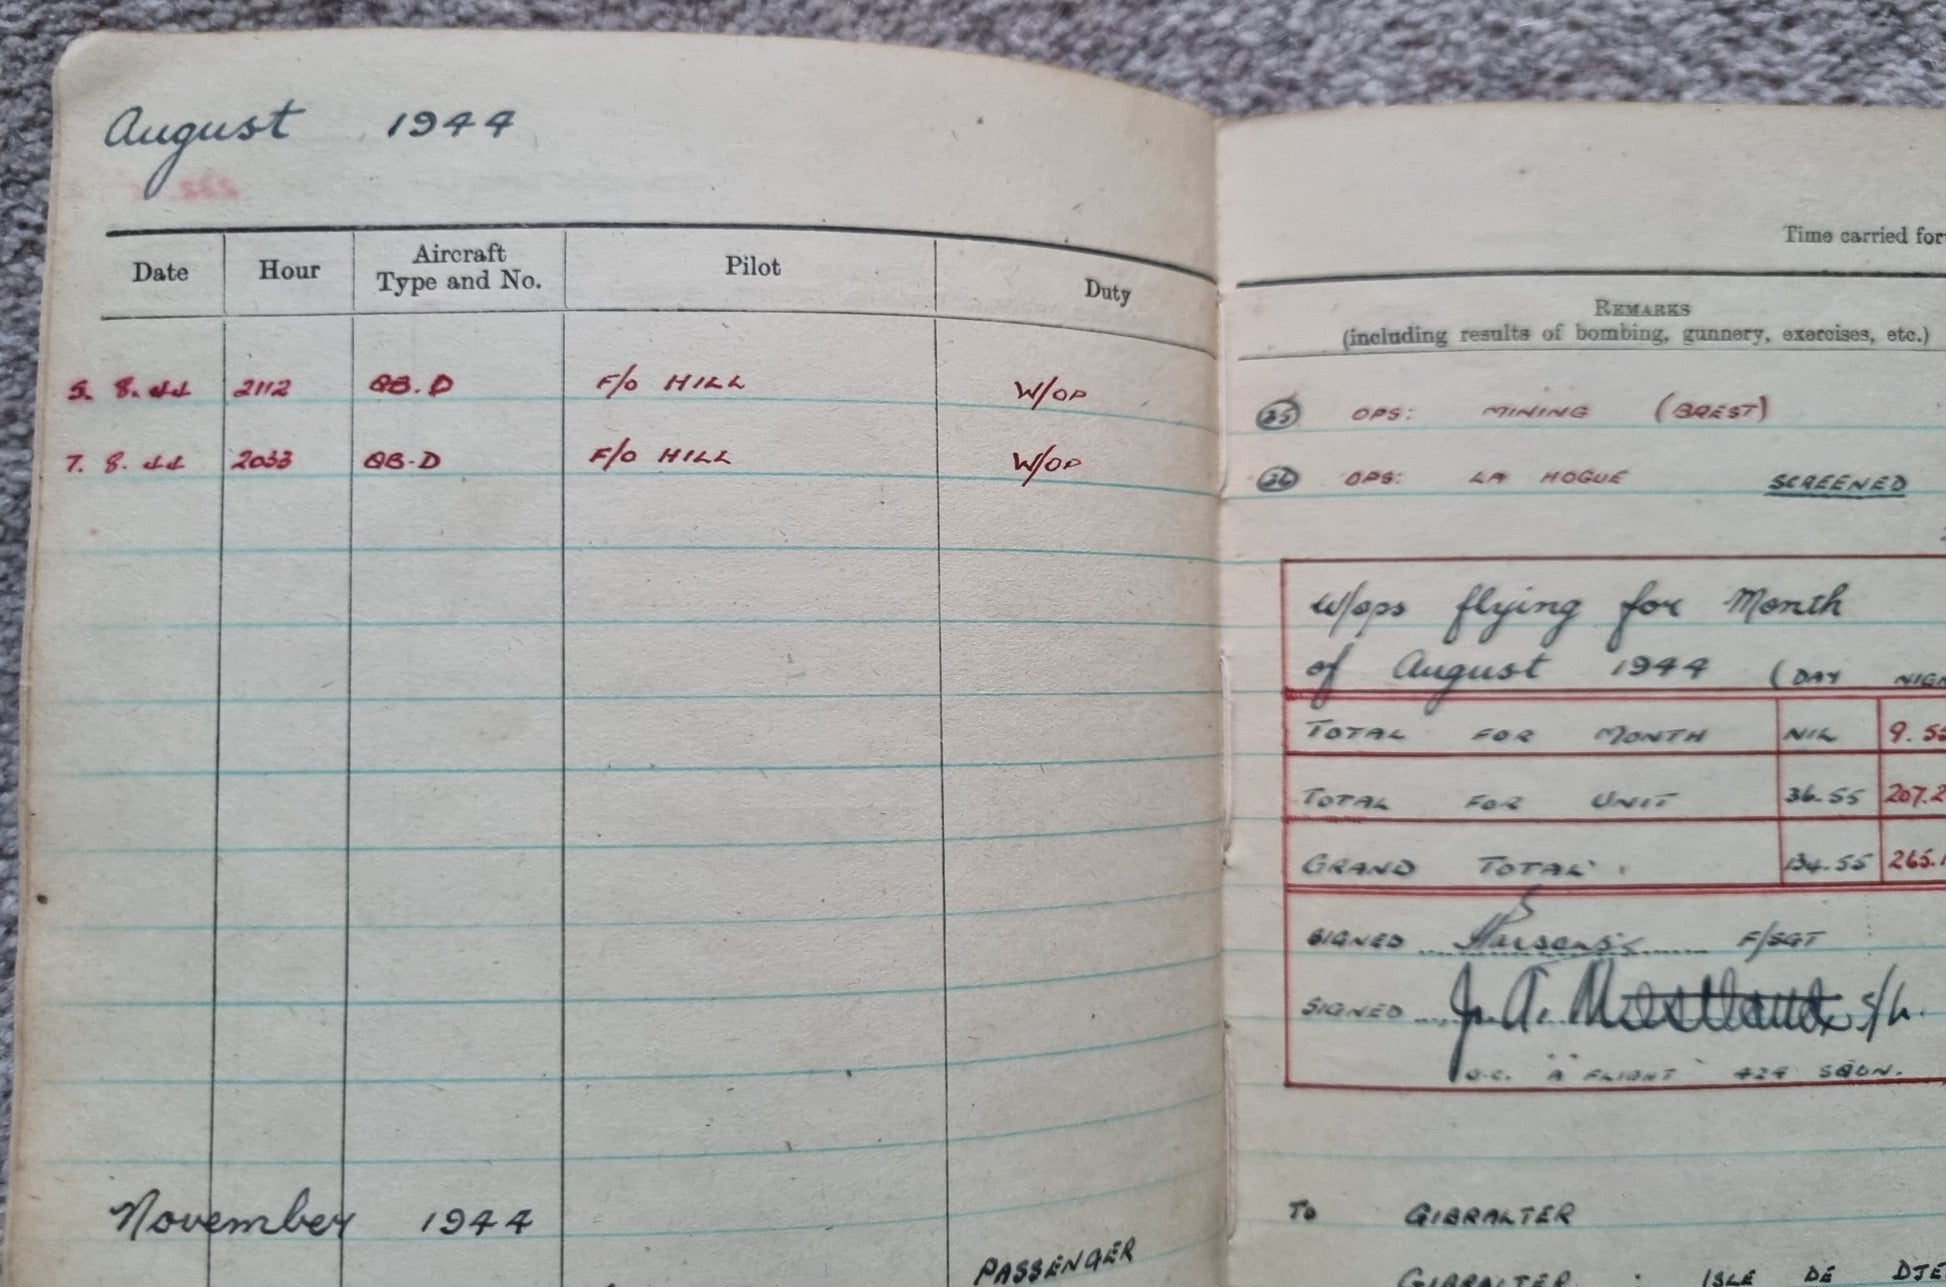 August 1944
Date Hour Aircraft Type and No. Pilot Duty
5. 8. 44 2112 QB.D F/O HILL W/OP
7. 8. 44 2033 QB-D F/O HILL W/OP
November 1944
PASSENGER
Time carried for
REMARKS
(including results of bombing, gunnery, exercises, etc.)
35 OPS: MINING (BREST)
36 OPS: LA HOGUE SCREENED
W/ops flying for Month
of August 1944 (DAY NIGH
TOTAL FOR MONTH NIL 9.55
TOTAL FOR UNIT 36.55 207.2
GRAND TOTAL 134.55 265.1
SIGNED F/SGT
SIGNED J. A. S/L.
O.C. "A" FLIGHT 424 SQDN.
To GIBRALTER
GIBRALTER : ISLE DE DJE